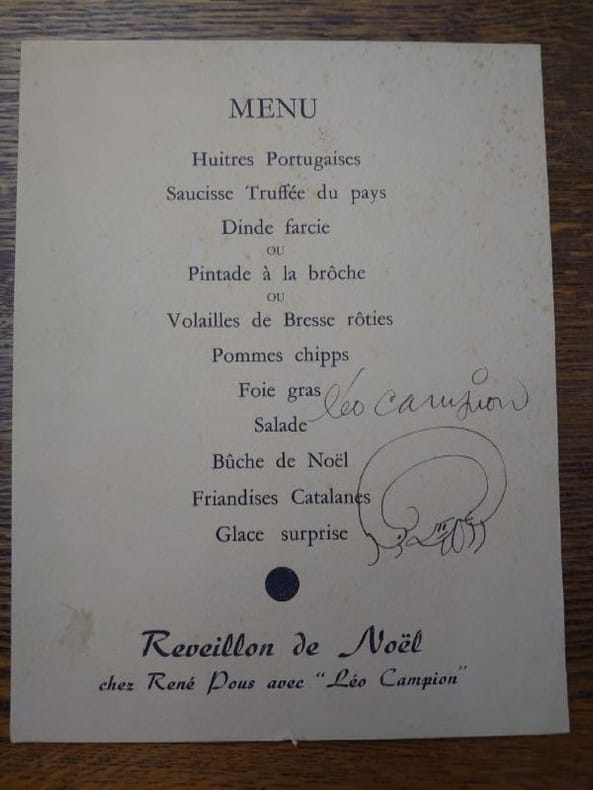 MENU
Huitres Portugaises
Saucisse Truffée du pays
Dinde farcie
OU
Pintade à la brôche
OU
Volailles de Bresse rôties
Pommes chipps
Foie gras
léo campion
Salade
Bûche de Noël
Friandises Catalanes
Glace surprise
Reveillon de Noël
chez René Pous avec "Léo Campion"